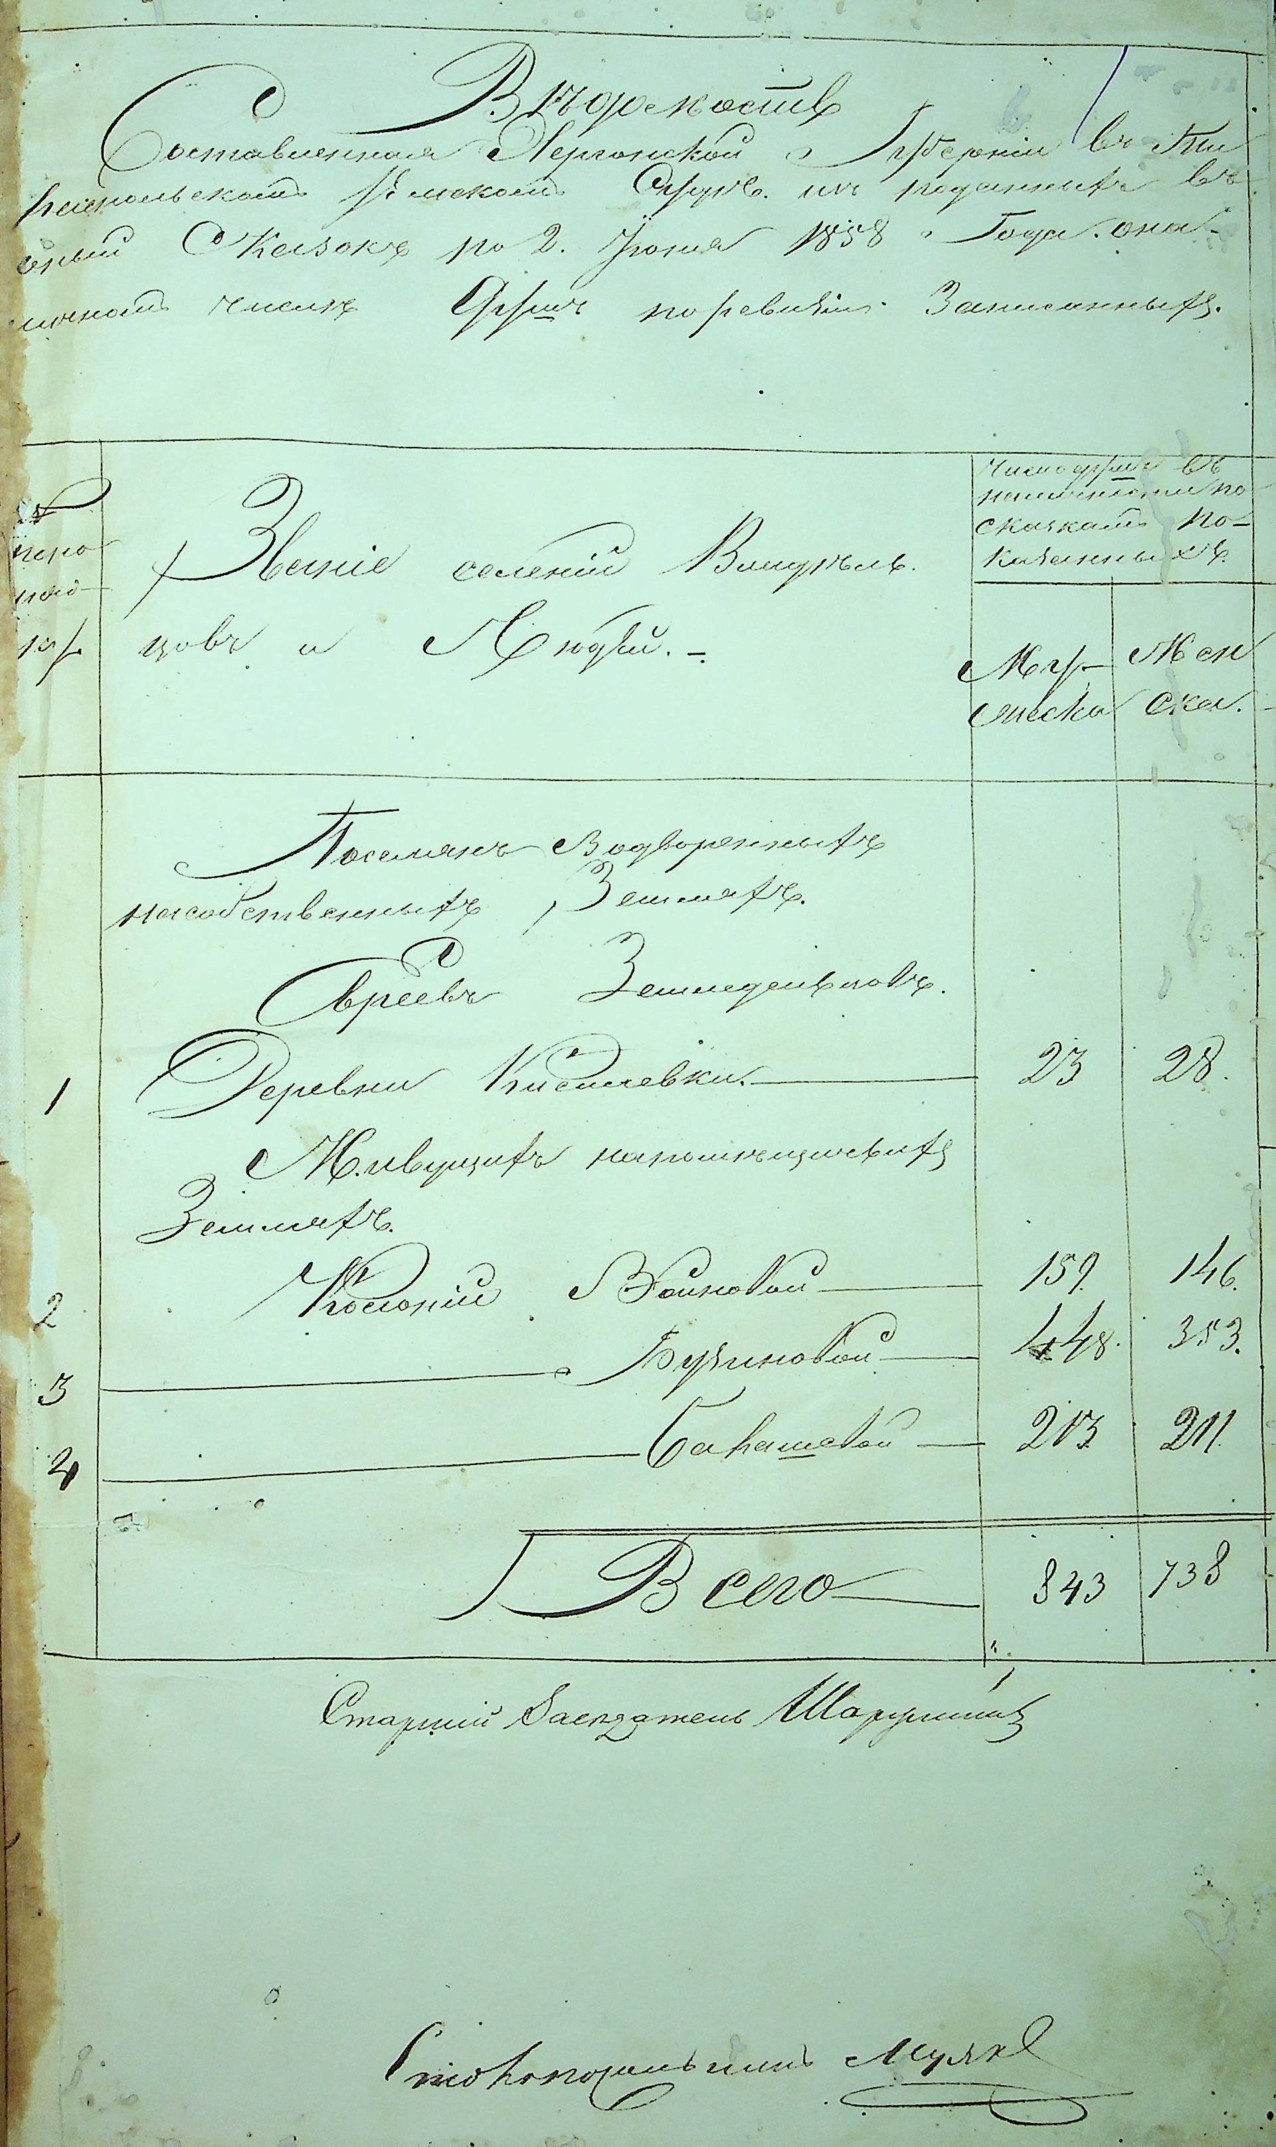 Вѣдомость
Составленная Херсонской Губерніи въ Ти
распольскомъ Земскомъ Судѣ. изъ поданныхъ въ
оный Сказокъ по 2. Іюня 1858 Года. о на
личномъ числѣ Душъ по ревизіи Записанныхъ.
№
по по
ряд
ку
Званіе селеній Владѣль.
цовъ и Людей.
Число душъ въ
наличности по
сказкамъ по-
казанныхъ.
Му-
жеска
Жен
ска.
Поселянъ Водворенныхъ
на собственныхъ Земляхъ.
Евреевъ Земледельцовъ.
1 Деревни Киселевки. 23 28.
Живущихъ на помѣщичьихъ
Земляхъ.
2 Колоніи Войновой 159. 146.
3 Бузиновой 448. 353.
4 Балашовой 213. 211.
Всего 843 738
Старшій Засѣдатель